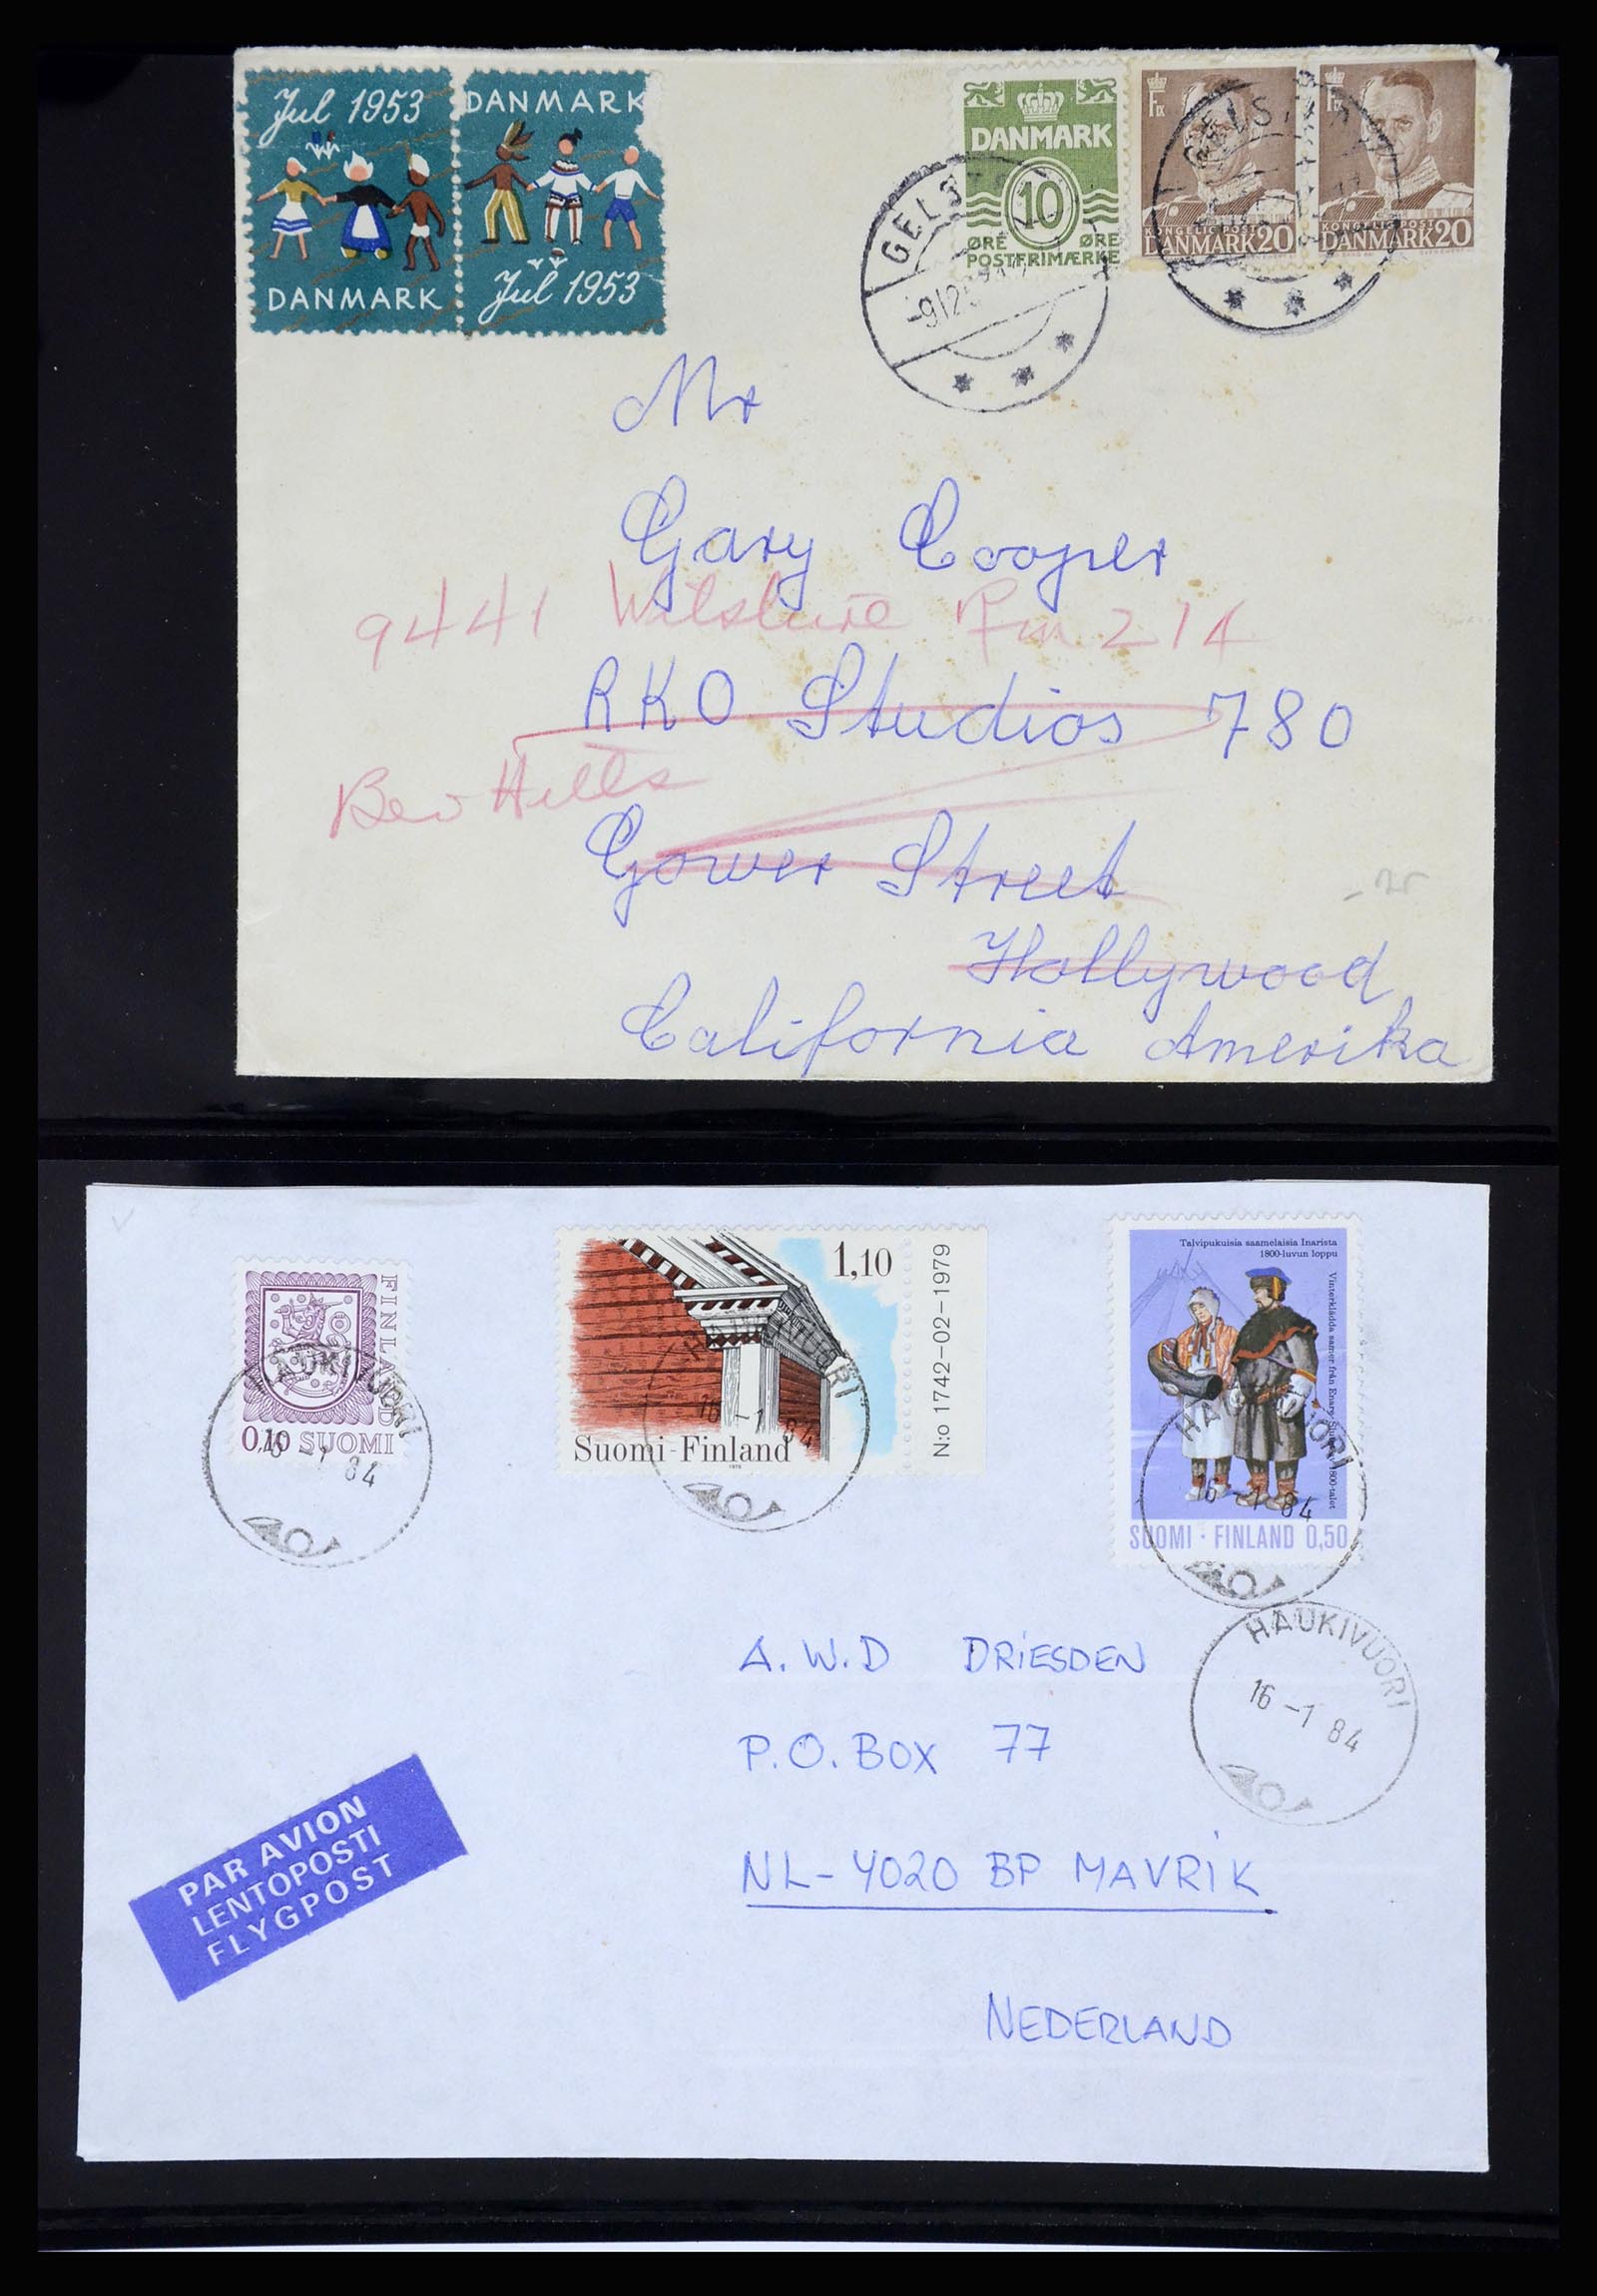 Jul 1953
DANMARK
DANMARK
Jul 1953
DANMARK
10
ØRE ØRE
POSTFRIMÆRKE
F IX
KONGELIG POST
DANMARK 20
F IX
KONGELIG POST
DANMARK 20
-9.12.
Mr
Gary Cooper
9441 Wilshire Rm 214
RKO Studios 780
Bev Hills
Gower Street
Hollywood
California Amerika
FINLAND
0,10 SUOMI
16 -1 84
1,10
Suomi-Finland
N:o 1742-02-1979
HAUKIVUORI
16 -1 84
Talvipukuisia saamelaisia Inarista
1800-luvun loppu
Vinterklädda samer från Enare,
1800-talet
SUOMI · FINLAND 0,50
HAUKIVUORI
16 -1 84
HAUKIVUORI
16 -1 84
A.W.D DRIESDEN
P.O. BOX 77
NL-4020 BP MAVRIK
NEDERLAND
PAR AVION
LENTOPOSTI
FLYGPOST